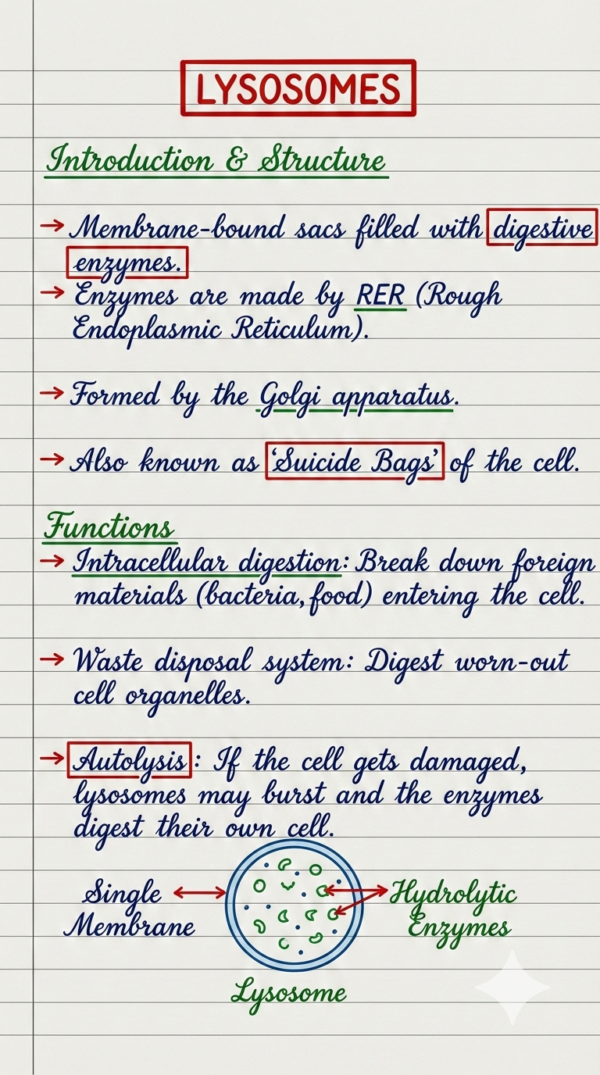 LYSOSOMES
Introduction & Structure
→ Membrane-bound sacs filled with digestive
enzymes.
→ Enzymes are made by RER (Rough
Endoplasmic Reticulum).
→ Formed by the Golgi apparatus.
→ Also known as ‘Suicide Bags’ of the cell.
Functions
→ Intracellular digestion: Break down foreign
materials (bacteria, food) entering the cell.
→ Waste disposal system: Digest worn-out
cell organelles.
→ Autolysis: If the cell gets damaged,
lysosomes may burst and the enzymes
digest their own cell.
Single
Membrane
Hydrolytic
Enzymes
Lysosome